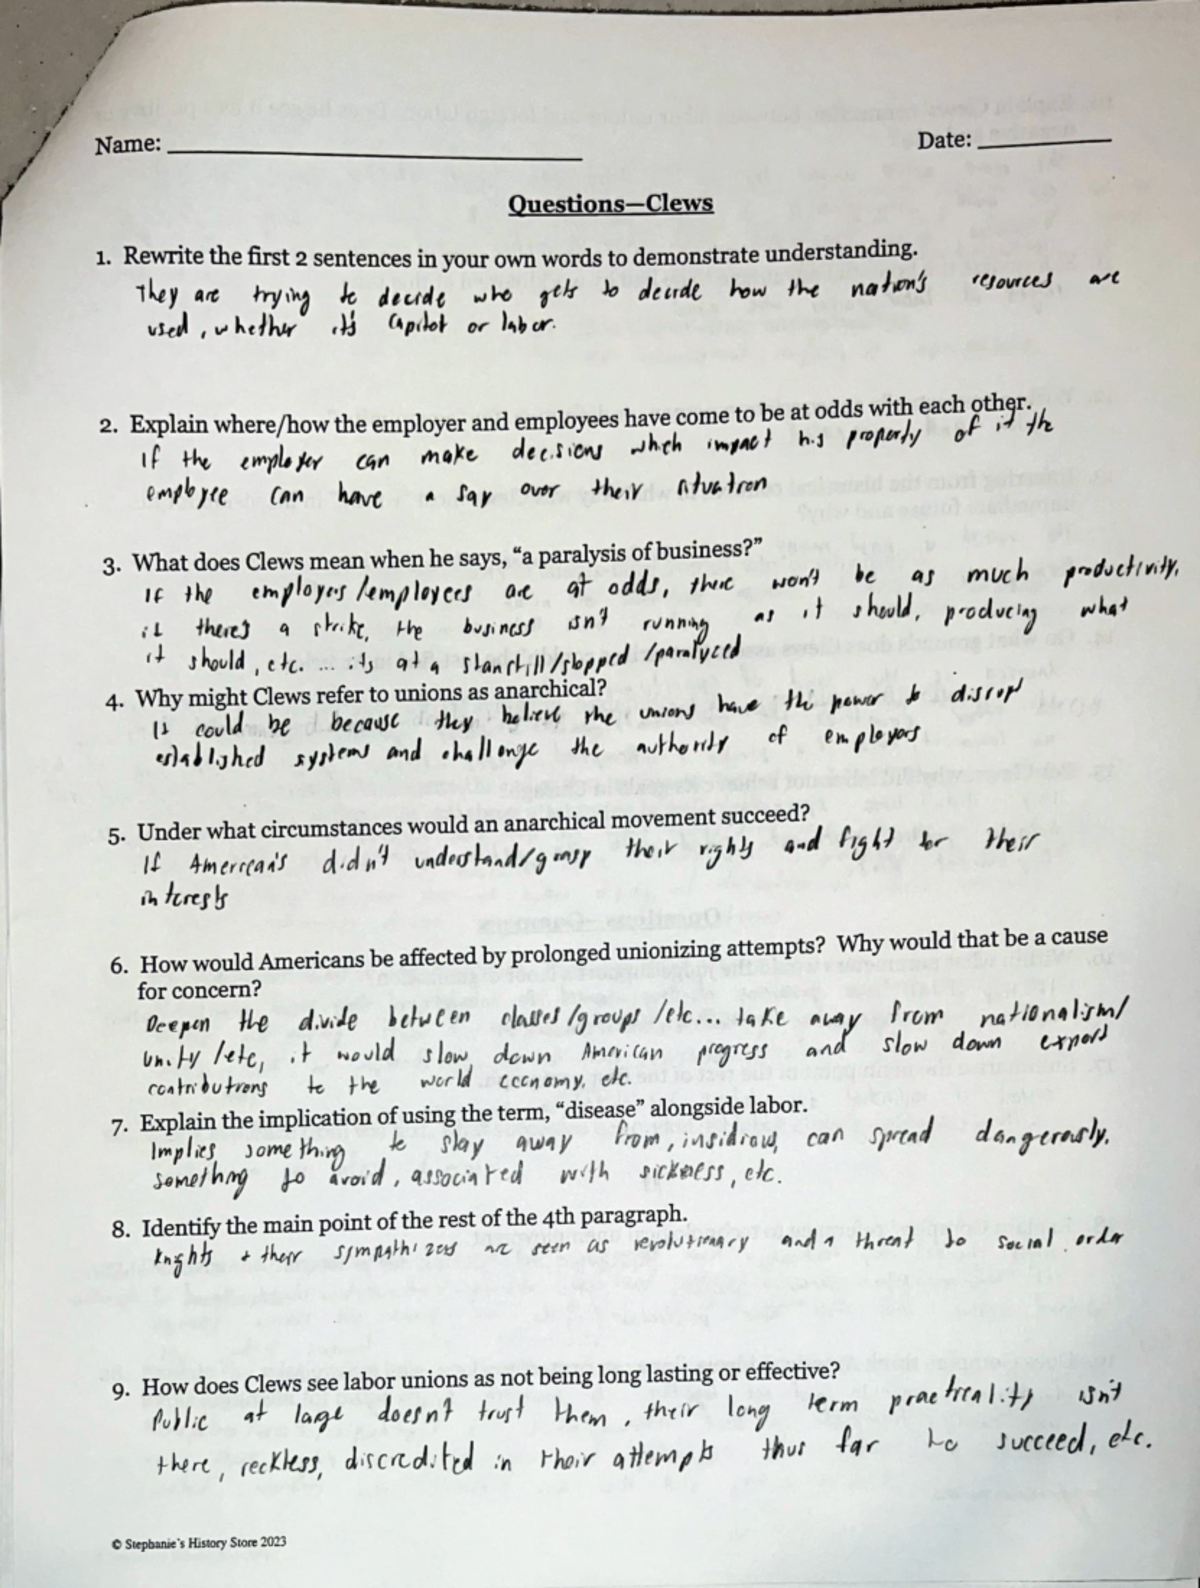 Name: Date:
Questions—Clews
1. Rewrite the first 2 sentences in your own words to demonstrate understanding.
They are trying to decide who gets to decide how the nation's resources are
used, whether it's Capitol or labor.
2. Explain where/how the employer and employees have come to be at odds with each other.
If the employer can make decisions which impact his property of if the
employee can have a say over their situation
3. What does Clews mean when he says, “a paralysis of business?”
If the employers/employees are at odds, there won't be as much productivity,
if there's a strike, the business isn't running as it should, producing what
it should, etc. ... its at a standstill/stopped/paralyzed
4. Why might Clews refer to unions as anarchical?
It could be because they believe the unions have the power to disrupt
established systems and challenge the authority of employers
5. Under what circumstances would an anarchical movement succeed?
If American's didn't understand/grasp their rights and fight for their
interests
6. How would Americans be affected by prolonged unionizing attempts? Why would that be a cause
for concern?
Deepen the divide between classes/groups/etc... take away from nationalism/
unity/etc, it would slow down American progress and slow down export
contributions to the world economy, etc.
7. Explain the implication of using the term, “disease” alongside labor.
Implies something to stay away from, insidious, can spread dangerously,
something to avoid, associated with sickness, etc.
8. Identify the main point of the rest of the 4th paragraph.
Knights + their sympathizers are seen as revolutionary and a threat to social order
9. How does Clews see labor unions as not being long lasting or effective?
Public at large doesn't trust them, their long term practicality isn't
there, reckless, discredited in their attempts thus far to succeed, etc.
© Stephanie's History Store 2023